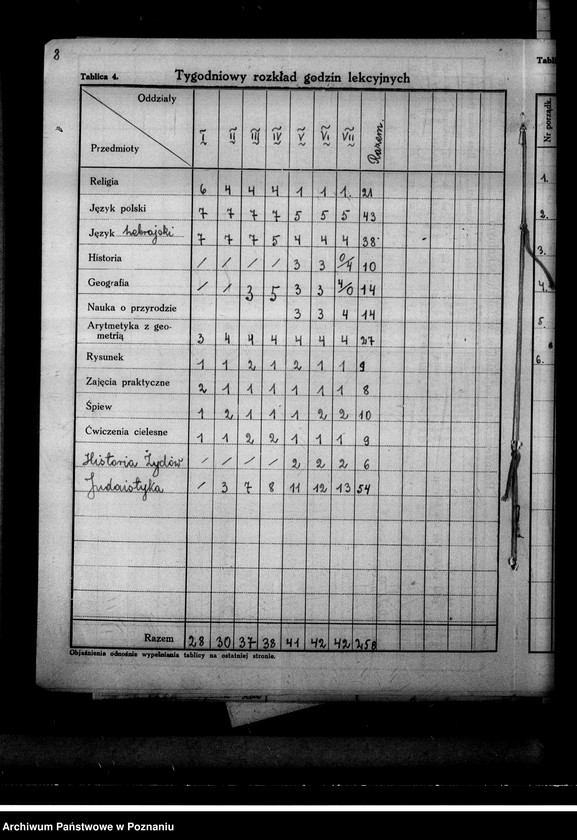 8
Tablica 4. Tygodniowy rozkład godzin lekcyjnych
Oddziały
Przedmioty I II III IV V VI VII Razem.
Religia 6 4 4 4 1 1 1. 21
Język polski 7 7 7 7 5 5 5 43
Język hebrajski 7 7 7 5 4 4 4 38
Historia / / / / 3 3 0/4 10
Geografia / / 3 5 3 3 4/0 14
Nauka o przyrodzie 3 3 4 14
Arytmetyka z geo-
metrią 3 4 4 4 4 4 4 27
Rysunek 1 1 2 1 2 1 1 9
Zajęcia praktyczne 2 1 1 1 1 1 1 8
Śpiew 1 2 1 1 1 2 2 10
Ćwiczenia cielesne 1 1 2 2 1 1 1 9
Historia Żydów / / / / 2 2 2 6
Judaistyka / 3 7 8 11 12 13 54
Razem 28 30 37 38 41 42 42 258
Objaśnienia odnośnie wypełniania tablicy na ostatniej stronie.
Tabli
Nr porządk.
1.
2.
3.
4.
5.
6.
Archiwum Państwowe w Poznaniu